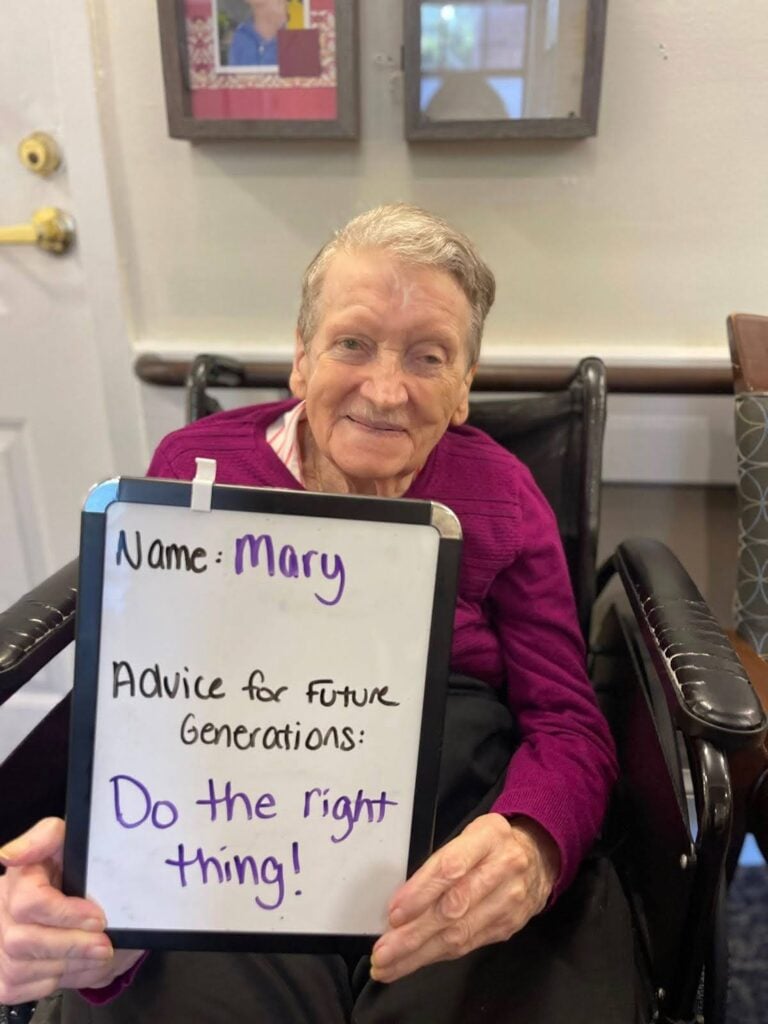 Name: Mary
Advice for Future
Generations:
Do the right
thing!